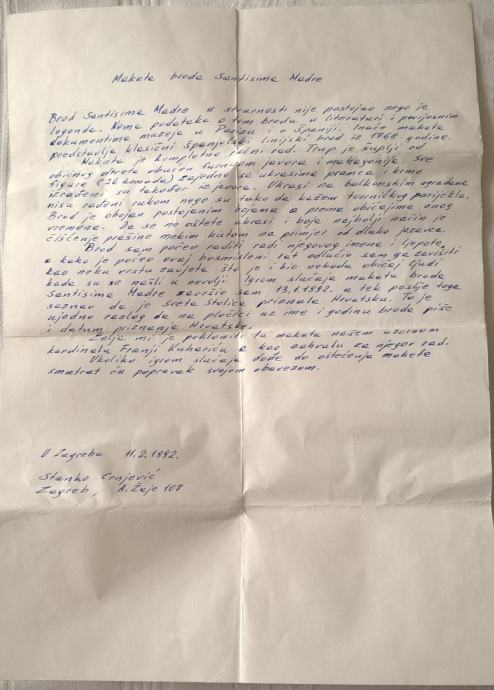 Maketa broda Santisima Madre
Brod Santisima Madre u stvarnosti nije postojao nego je
legenda. Nema podataka o tom brodu u literaturi i povijesnim
dokumentima muzeja u Parizu i u Španiji. Inače maketa
predstavlja klasični španjolski linijski brod iz 1768. godine.
Maketa je kompletno ručni rad. Trup je šuplji od
običnog drveta obučen furnirom javora i mahagonija. Sve
figure (26 komada) zajedno sa ukrasima pramca i krme
izrađeni su također iz javora. Ukrasi na balkonskim ogradama
nisu rađeni rukom nego su tako da kažem tvorničkog porijekla.
Brod je obojan postojanim bojama a prema običajima onog
vremena. Da se ne oštete ukrasi i boje najbolji način je
čišćenje prašine mekim kistom na primjer od dlake jazavca
Brod sam počeo raditi radi njegovog imena i ljepote,
a kako je počeo ovaj besmisleni rat odlučio sam ga završiti
kao neku vrstu zavjeta što je i bio nekada običaj ljudi
kada su se našli u nevolji. Igrom slučaja maketu broda
Santisima Madre završio sam 13.1.1992. a tek poslije toga
saznao da je Sveta Stolica priznala Hrvatsku. To je
ujedno razlog da na pločici uz ime i godinu broda piše
i datum priznanja Hrvatske.
Želja mi je pokloniti tu maketu našem uzornom
kardinalu Franji Kuhariću a kao zahvalu za njegov rad.
Ukoliko igrom slučaja dođe do oštećenja makete
smatrat ću popravak svojom obavezom.
U Zagrebu 11.2.1992.
Stanko Crnjević
Zagreb, A. Žaje 108